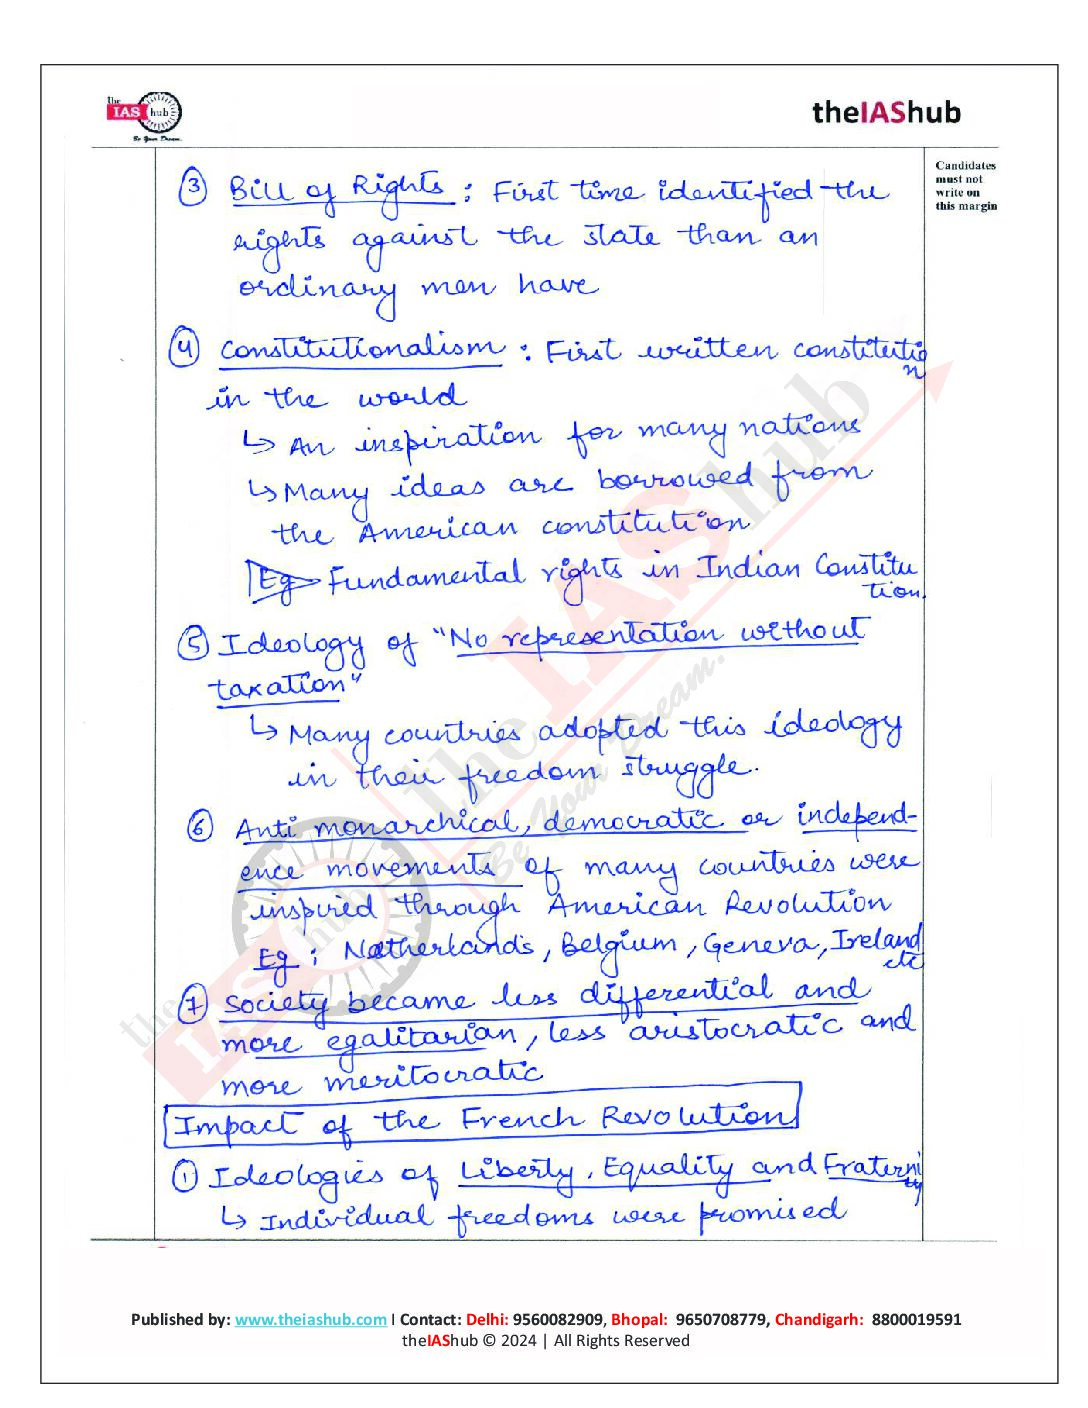 the
IAS hub
Be Your Dream.
theIAShub
Candidates
must not
write on
this margin
③ Bill of Rights : First time identified the
rights against the state than an
ordinary men have
④ Constitutionalism : First written constitution
in the world
↳ An inspiration for many nations
↳ Many ideas are borrowed from
the American constitution
Eg Fundamental rights in Indian Constitu
tion.
⑤ Ideology of "No representation without
taxation"
↳ Many countries adopted this ideology
in their freedom struggle.
⑥ Anti monarchical, democratic or independ-
ence movements of many countries were
inspired through American Revolution
Eg : Netherlands, Belgium, Geneva, Ireland
etc
⑦ Society became less differential and
more egalitarian, less aristocratic and
more meritocratic
Impact of the French Revolution
① Ideologies of Liberty, Equality and Fraternity
↳ Individual freedoms were promised
the IAS hub
Be Your Dream.
Published by: www.theiashub.com I Contact: Delhi: 9560082909, Bhopal: 9650708779, Chandigarh: 8800019591
theIAShub © 2024 | All Rights Reserved